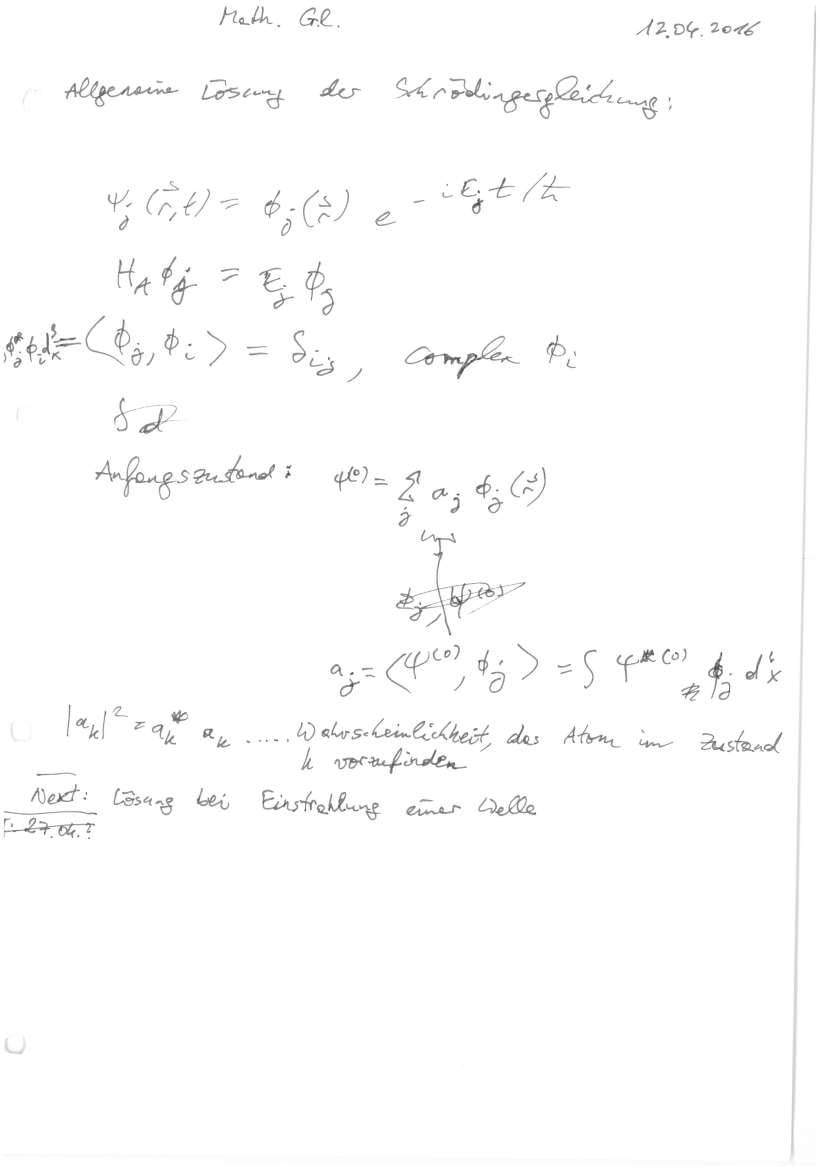 Math. Gl.
12.04.2016
Allgemeine Lösung der Schrödingergleichung:
ψ_j (r⃗,t) = ϕ_j (r⃗) e^{-i E_j t/ħ}
H_A ϕ_j = E_j ϕ_j
ϕ_j^* ϕ_i d^3x = ⟨ϕ_j, ϕ_i⟩ = δ_{ij}, complex ϕ_i
Anfangszustand: ψ^{(0)} = Σ_j a_j ϕ_j (r⃗)
ϕ_j, ψ^{(0)}
a_j = ⟨ψ^{(0)}, ϕ_j⟩ = ∫ ψ^{*(0)} ϕ_j d^3x
|a_k|^2 = a_k^* a_k ..... Wahrscheinlichkeit, das Atom im Zustand
k vorzufinden
Next: Lösung bei Einstrahlung einer Welle
27.04.?